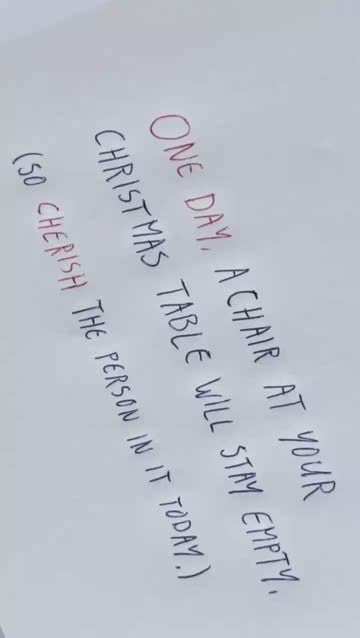 ONE DAY, A CHAIR AT YOUR
CHRISTMAS TABLE WILL STAY EMPTY.
(SO CHERISH THE PERSON IN IT TODAY.)